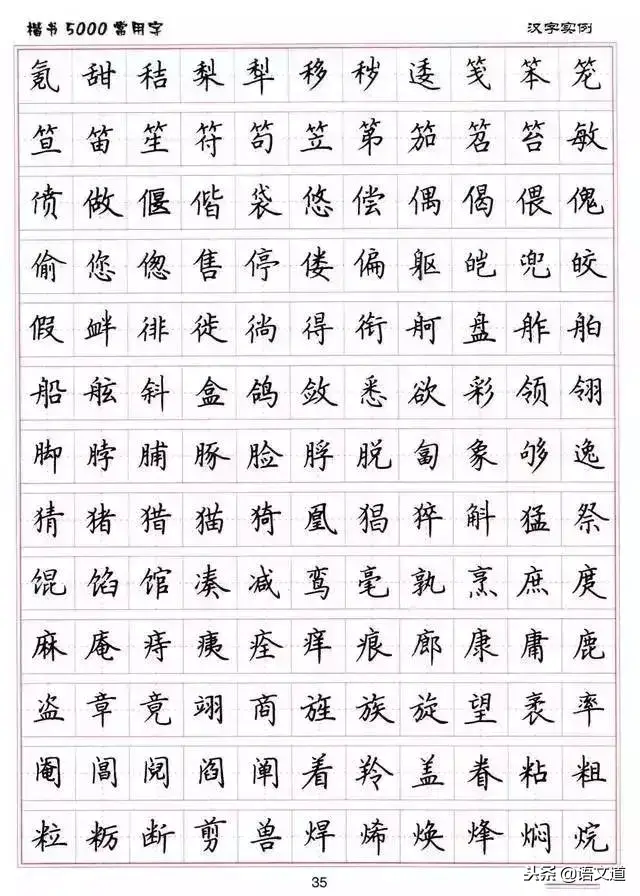 楷书5000常用字 汉字实例
氪 甜 秸 梨 犁 移 秽 逶 笺 笨 笼
笪 笛 笙 符 笱 笠 第 笳 笤 笞 敏
偾 做 偃 偕 袋 悠 偿 偶 偈 偎 傀
偷 您 偬 售 停 偻 偏 躯 皑 兜 皎
假 衅 徘 徙 徜 得 衔 舸 盘 舴 舶
船 舷 斜 盒 鸽 敛 悉 欲 彩 领 翎
脚 脖 脯 豚 脸 脬 脱 匐 象 够 逸
猜 猪 猎 猫 猗 凰 猖 猝 斛 猛 祭
馄 馅 馆 凑 减 鸾 毫 孰 烹 庶 庹
麻 庵 痔 痍 痊 痒 痕 廊 康 庸 鹿
盗 章 竟 翊 商 旌 族 旋 望 袤 率
阉 阊 阋 阎 阐 着 羚 盖 眷 粘 粗
粒 粝 断 剪 兽 焊 烯 焕 烽 焖 烷
35
头条@语文道